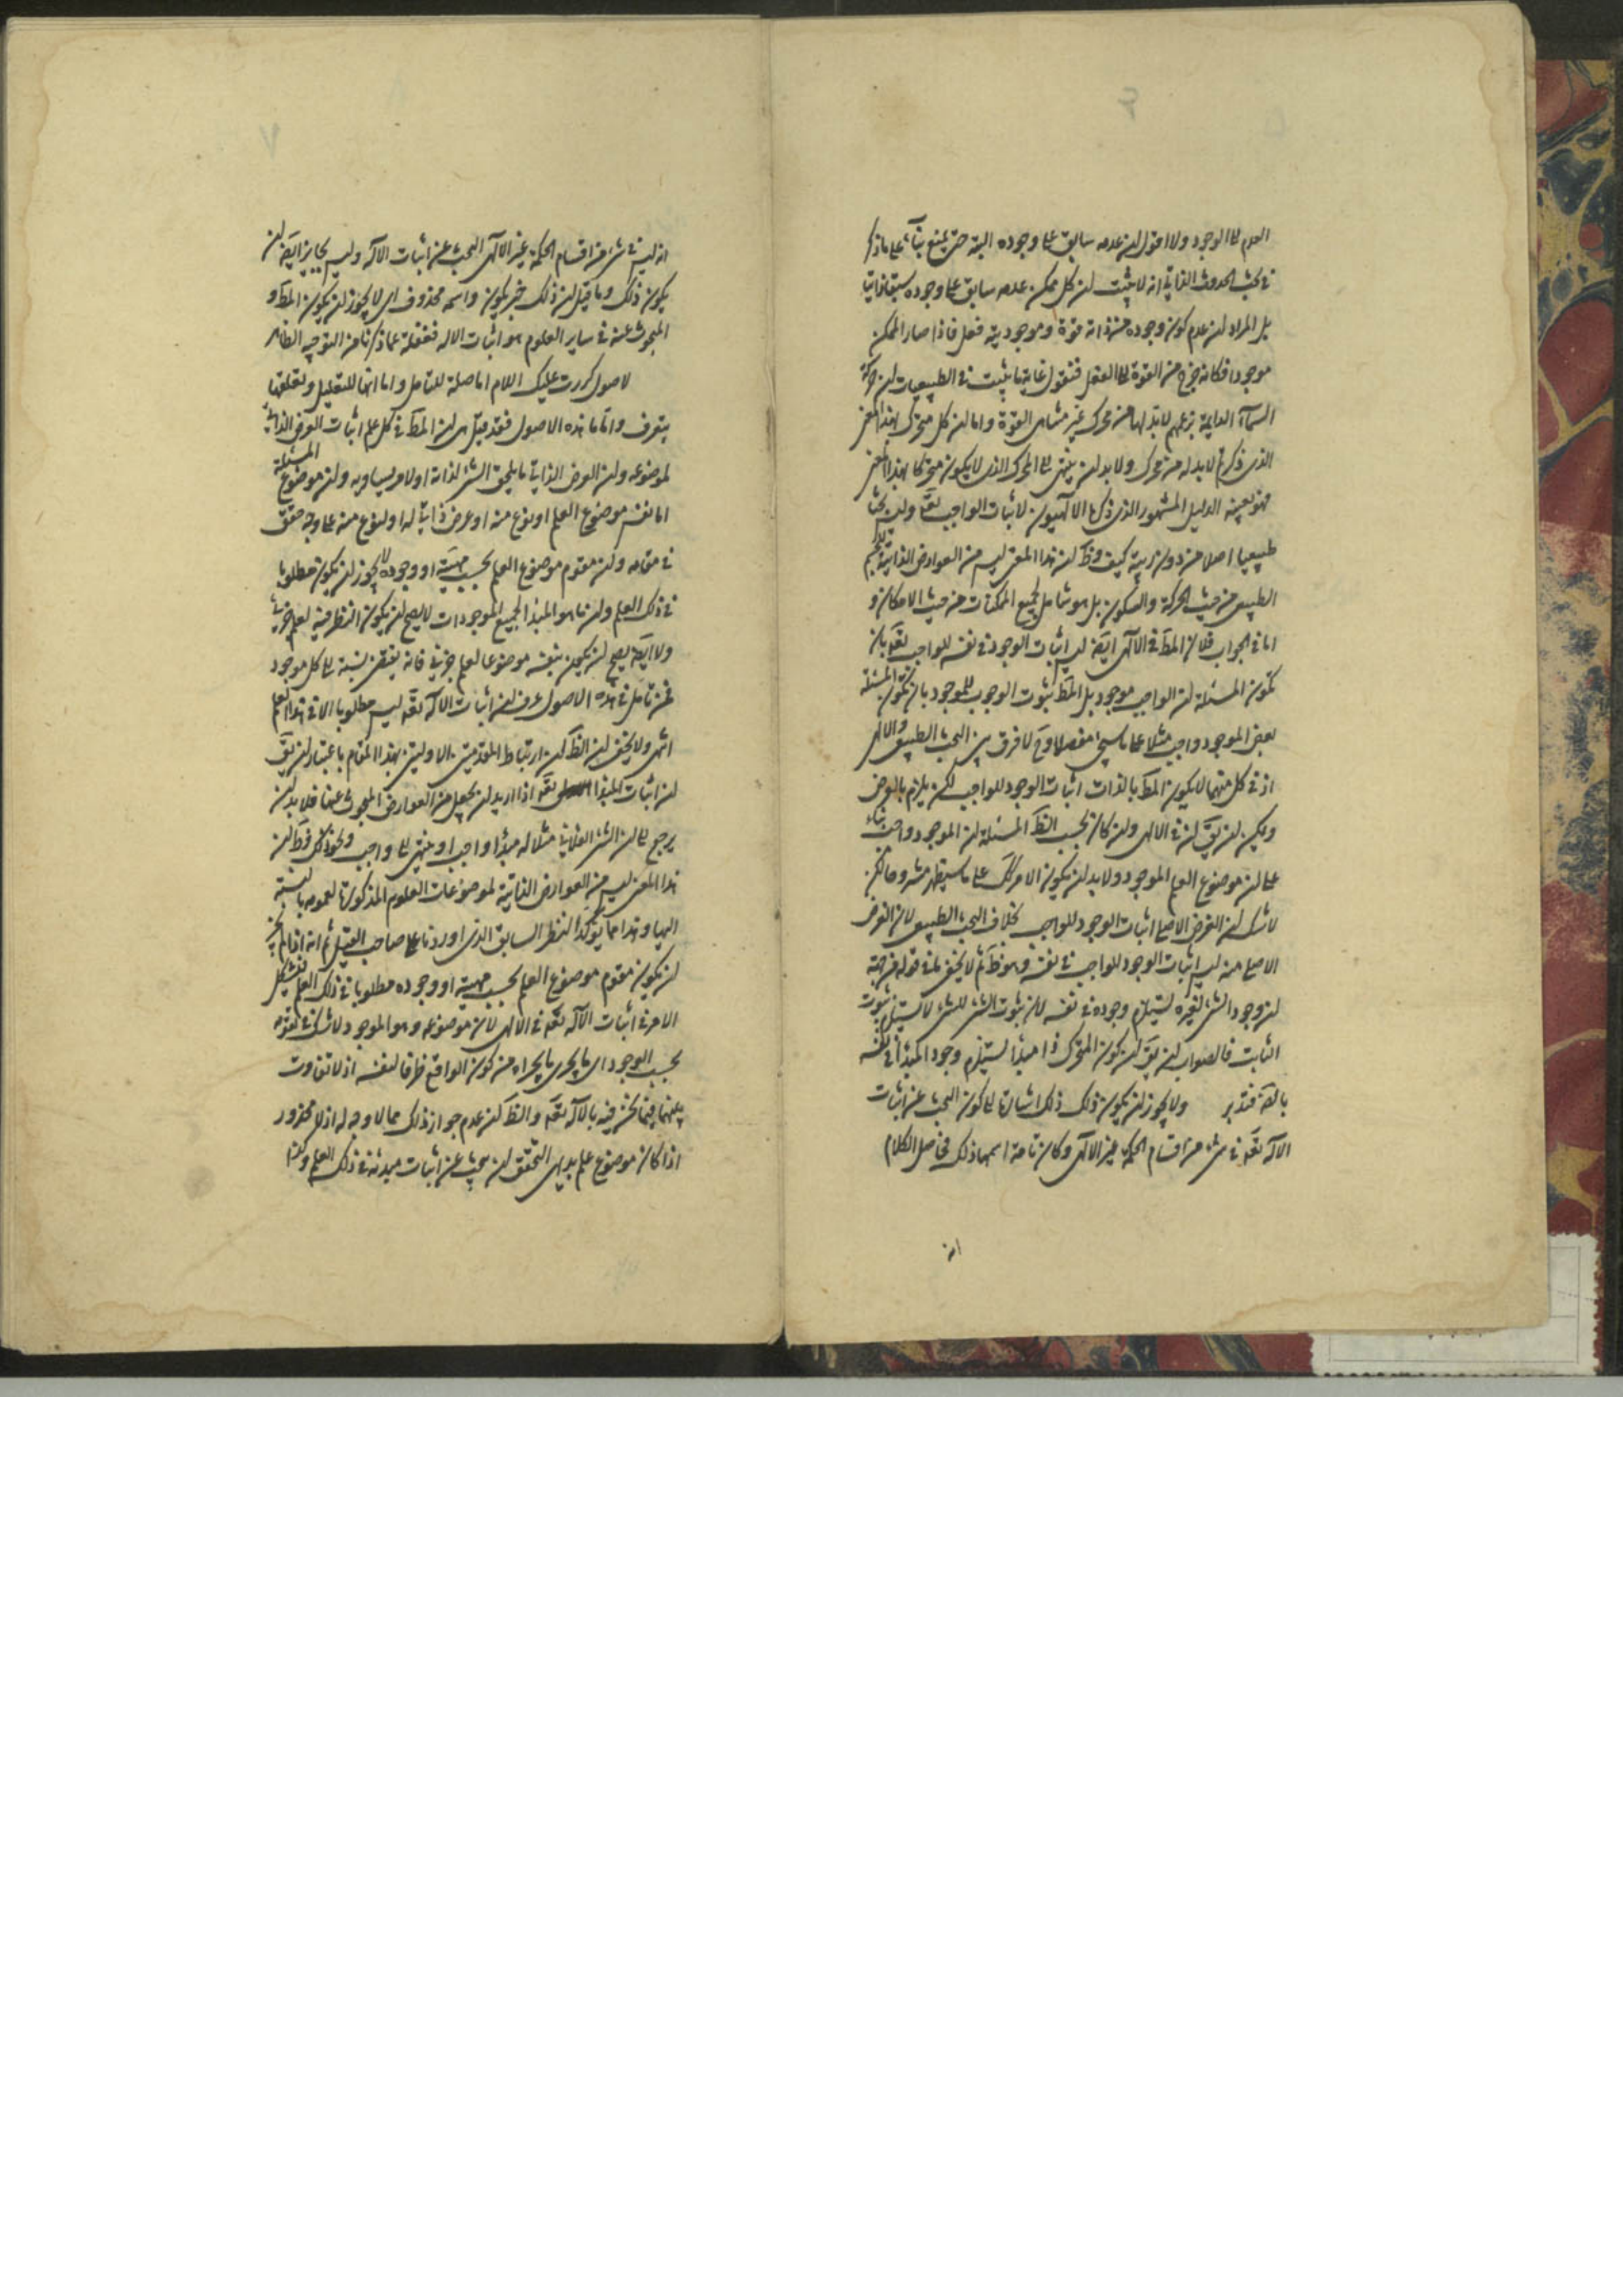 العدم الى الوجود ولا اقول ان عدمه سابق على وجوده البتة حتى يمنع بناء على ما ذكر
في بحث الحدوث الذاتي انه لا يثبت ان كل ممكن عدمه سابق على وجوده سبقا ذاتيا
بل المراد ان عدم كون وجوده من ذاته قوة وموجوديته فعل فاذا صار الممكن
موجودا فكانه خرج من القوة الى الفعل فنقول غاية ما يثبت في الطبيعيات ان حركة
السماء الدايمة بزعمهم لابد لها من محرك غير متناهى القوة واما ان كل متحرك بهذا المعنى
الذى ذكر لابد له من محرك ولابد ان ينتهى الى المحرك الذى لا يكون متحركا بهذا المعنى
فهو بعينه الدليل المشهور الذى ذكره الالهيون لاثبات الواجب تعالى وليس بحثا
طبيعيا اصلا من دون ريبة كيف وظ ان هذا المعنى ليس من العوارض الذاتية للجسم
الطبيعى من حيث الحركة والسكون بل هو شامل لجميع الممكنات من حيث الامكان و
اما في الجواب فلان المط في الالهى ايضا ليس اثبات الوجود في نفسه للواجب تعالى بان
تكون المسئلة ان الواجب موجود بل المط ثبوت الوجوب للموجود بان تكون المسئلة
بعض الموجود واجب مثلا على ما سيجئ مفصلا وح لا فرق بين البحث الطبيعى والالهى
اذ في كل منهما لا يكون المط بالذات اثبات الوجود للواجب لكن يلزم بالعرض
ويمكن ان يق ان في الالهى وان كان بحسب الظ المسئلة ان الموجود واجب بناء
على ان موضوع العلم الموجود ولابد ان يكون الامر كك على ما سيظهر مشروحا لكن
لا شك ان الغرض الاصلى اثبات الوجود للواجب بخلاف البحث الطبيعى لان الغرض
الاصلى منه ليس اثبات الوجود للواجب في نفسه وهو ظ ثم لا يخفى ان في قوله
ان وجود الشئ لغيره يستلزم وجوده في نفسه لان ثبوت الشئ للشئ لا يستلزم ثبوت
الثابت فالصواب ان يق ان كون المتحرك ذا مبدأ يستلزم وجود المبدأ في نفسه
فتدبر ولا يجوز ان يكون ذلك ذلك اشارة الى كون البحث عن اثبات
الاله تعالى في شئ من اقسام الحكمة غير الالهى وكان تامة اسمها ذلك فحاصل الكلام
انه
انه ليس في شئ من اقسام الحكمة غير الالهى البحث عن اثبات الاله وليس بجايز ايضا ان
يكون ذلك وما قيل ان ذلك خبر يكون واسمه محذوف اى لا يجوز ان يكون المط و
المبحوث عنه في ساير العلوم هو اثبات الاله فغفلة عما ذكرنا من التوجيه الظاهر
لاصول كررت عليك اللام اما صلة للتامل واما انها للتعليل ولتعلقها
بتعرف واما ما هذه الاصول فقد قيل هى ان المط في كل علم اثبات العرض الذاتى
لموضوعه وان العرض الذاتى ما يلحق الشئ لذاته او لامر يساويه وان موضوع المسئلة
اما نفس موضوع العلم او نوع منه او عرض ذاتى له او لنوع منه على وجه حقق
في مقامه وان مقوم موضوع العلم بحسب مهيته او وجوده لا يجوز ان يكون مطلوبا
في ذلك العلم وان ما هو المبدأ لجميع الموجودات لا يصح ان يكون النظر فيه لعلم جزئى
ولا ايضا يصح ان يكون بنفسه موضوعا لعلم جزئى فانه يقتضى نسبة الى كل موجود
فمن تامل في هذه الاصول عرف ان اثبات الاله تعالى ليس مطلوبا الا في هذا العلم
انتهى ولا يخفى ان الظ ان ارتباط المقدمتين الاوليين بهذا المقام باعتبار ان يق
ان اثبات المبدأ تعالى اذا اريد ان يجعل من العوارض المبحوث عنها فلابد ان
يرجع الى ان الشئ الفلانى مثلا له مبدأ واجب او ينتهى الى واجب ونحو ذلك وظ ان
هذا المعنى ليس من العوارض الذاتية لموضوعات العلوم المذكورة لعمومه بالنسبة
اليها وهذا مما يؤكد النظر السابق الذى اوردنا على صاحب القيل ثم انه اذا لم يجز
ان يكون مقوم موضوع العلم بحسب مهيته او وجوده مطلوبا في ذلك العلم فيشكل
الامر في اثبات الاله تعالى في الالهى لان موضوعه وهو الموجود لا شك في تقومه
بحسب الوجود اى ما يجرى مجراه من كون الواقع ظرفا لنفسه اذ لا تفاوت
بينهما فيما نحن فيه بالاله تعالى والظ ان عدم جواز ذلك مما لا وجه له اذ لا محذور
اذا كان موضوع علم بديهى التحقق ان يبحث عن اثبات مبدئه في ذلك العلم وكذا